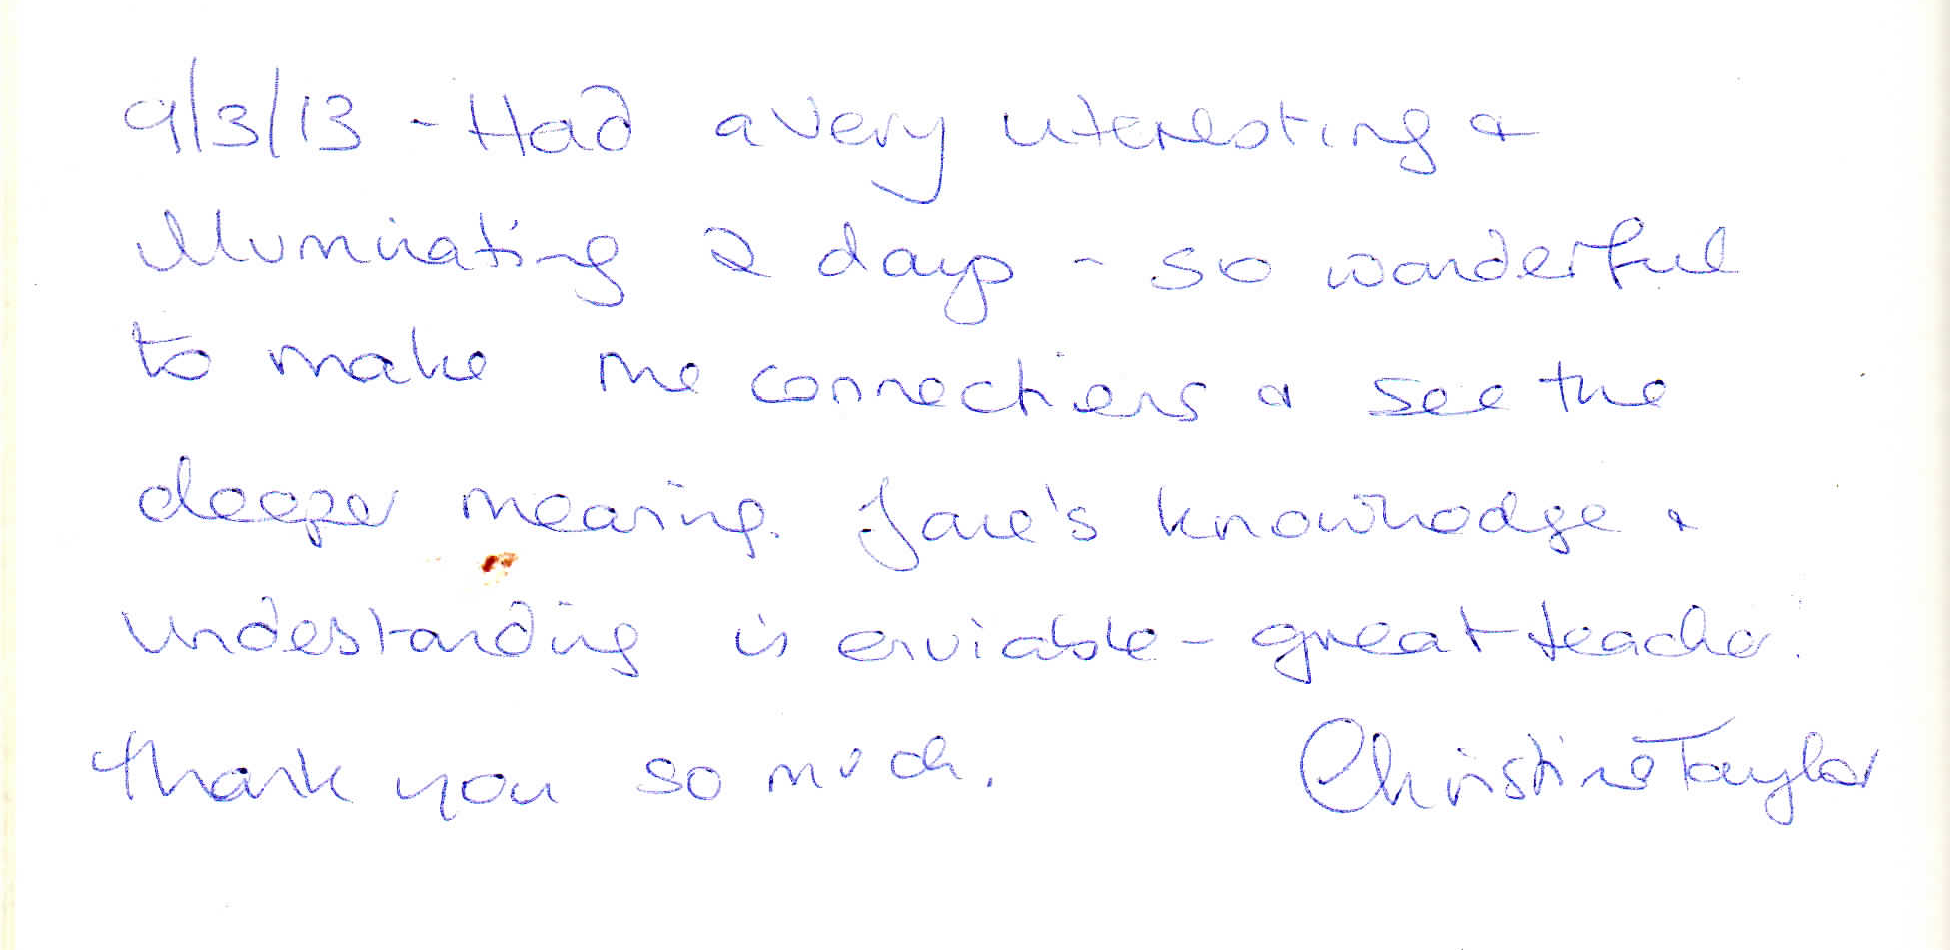 9/3/13 - Had a very interesting &
illuminating 2 days - so wonderful
to make the connections & see the
deeper meaning. Jane's knowledge &
understanding is enviable - great teacher.
Thank you so much. Christine Taylor